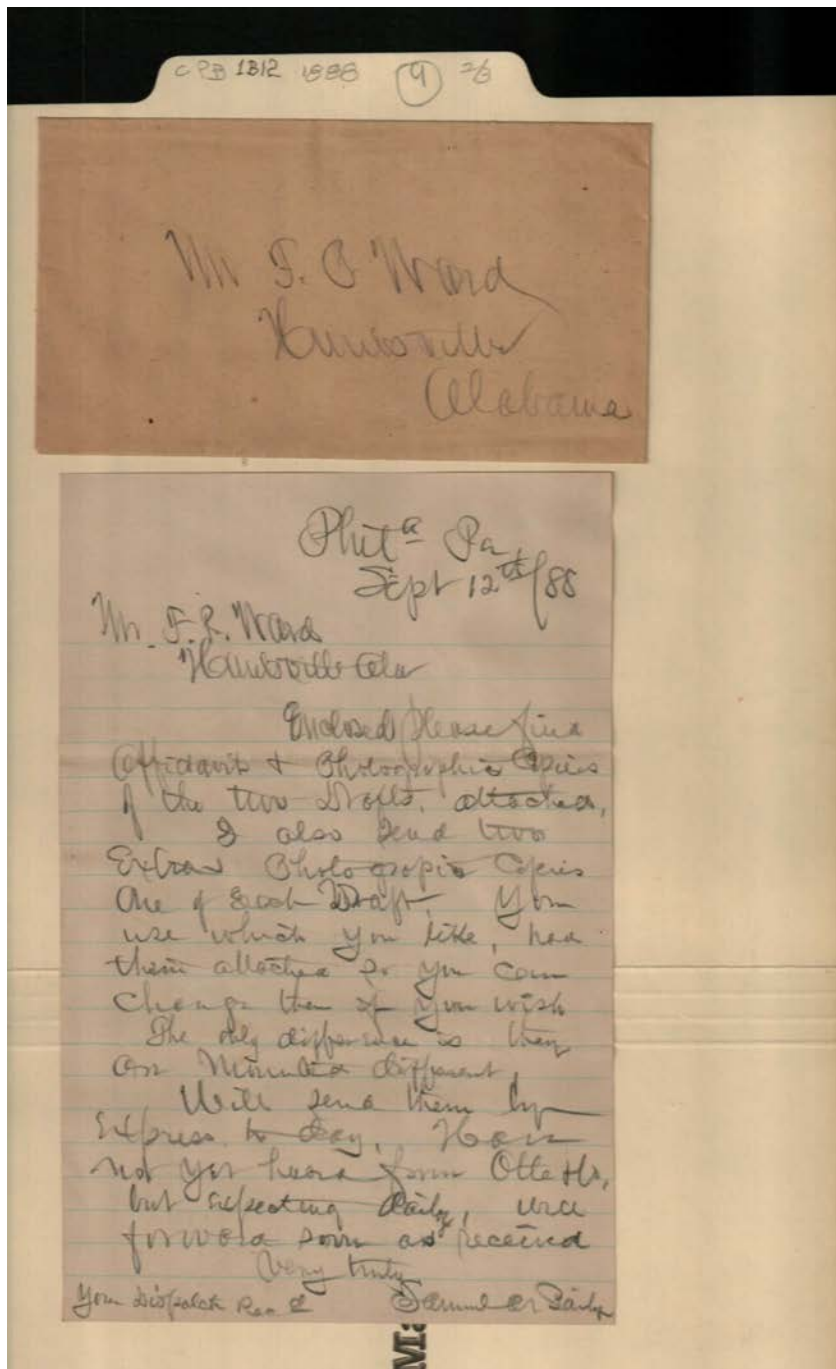 CPB 1B12 1888 (9) 2/3
Mr F. B Ward
Huntsville
Alabama
Phila Pa
Sept 12th/88
Mr. F. B. Ward
Huntsville Ala
Enclosed please find
Affidavits & Photographic Copies
of the two Drafts. attached,
I also send two
Extra Photographic Copies
One of Each Draft, You
use which you like, had
them attached so you can
change them if you wish
The only difference is they
are Mounted different,
Will send them by
Express to day, Have
not yet heard from
but expecting daily, will
forward soon as received
Very truly
Your Dispatch Recd
Samuel Baily
M